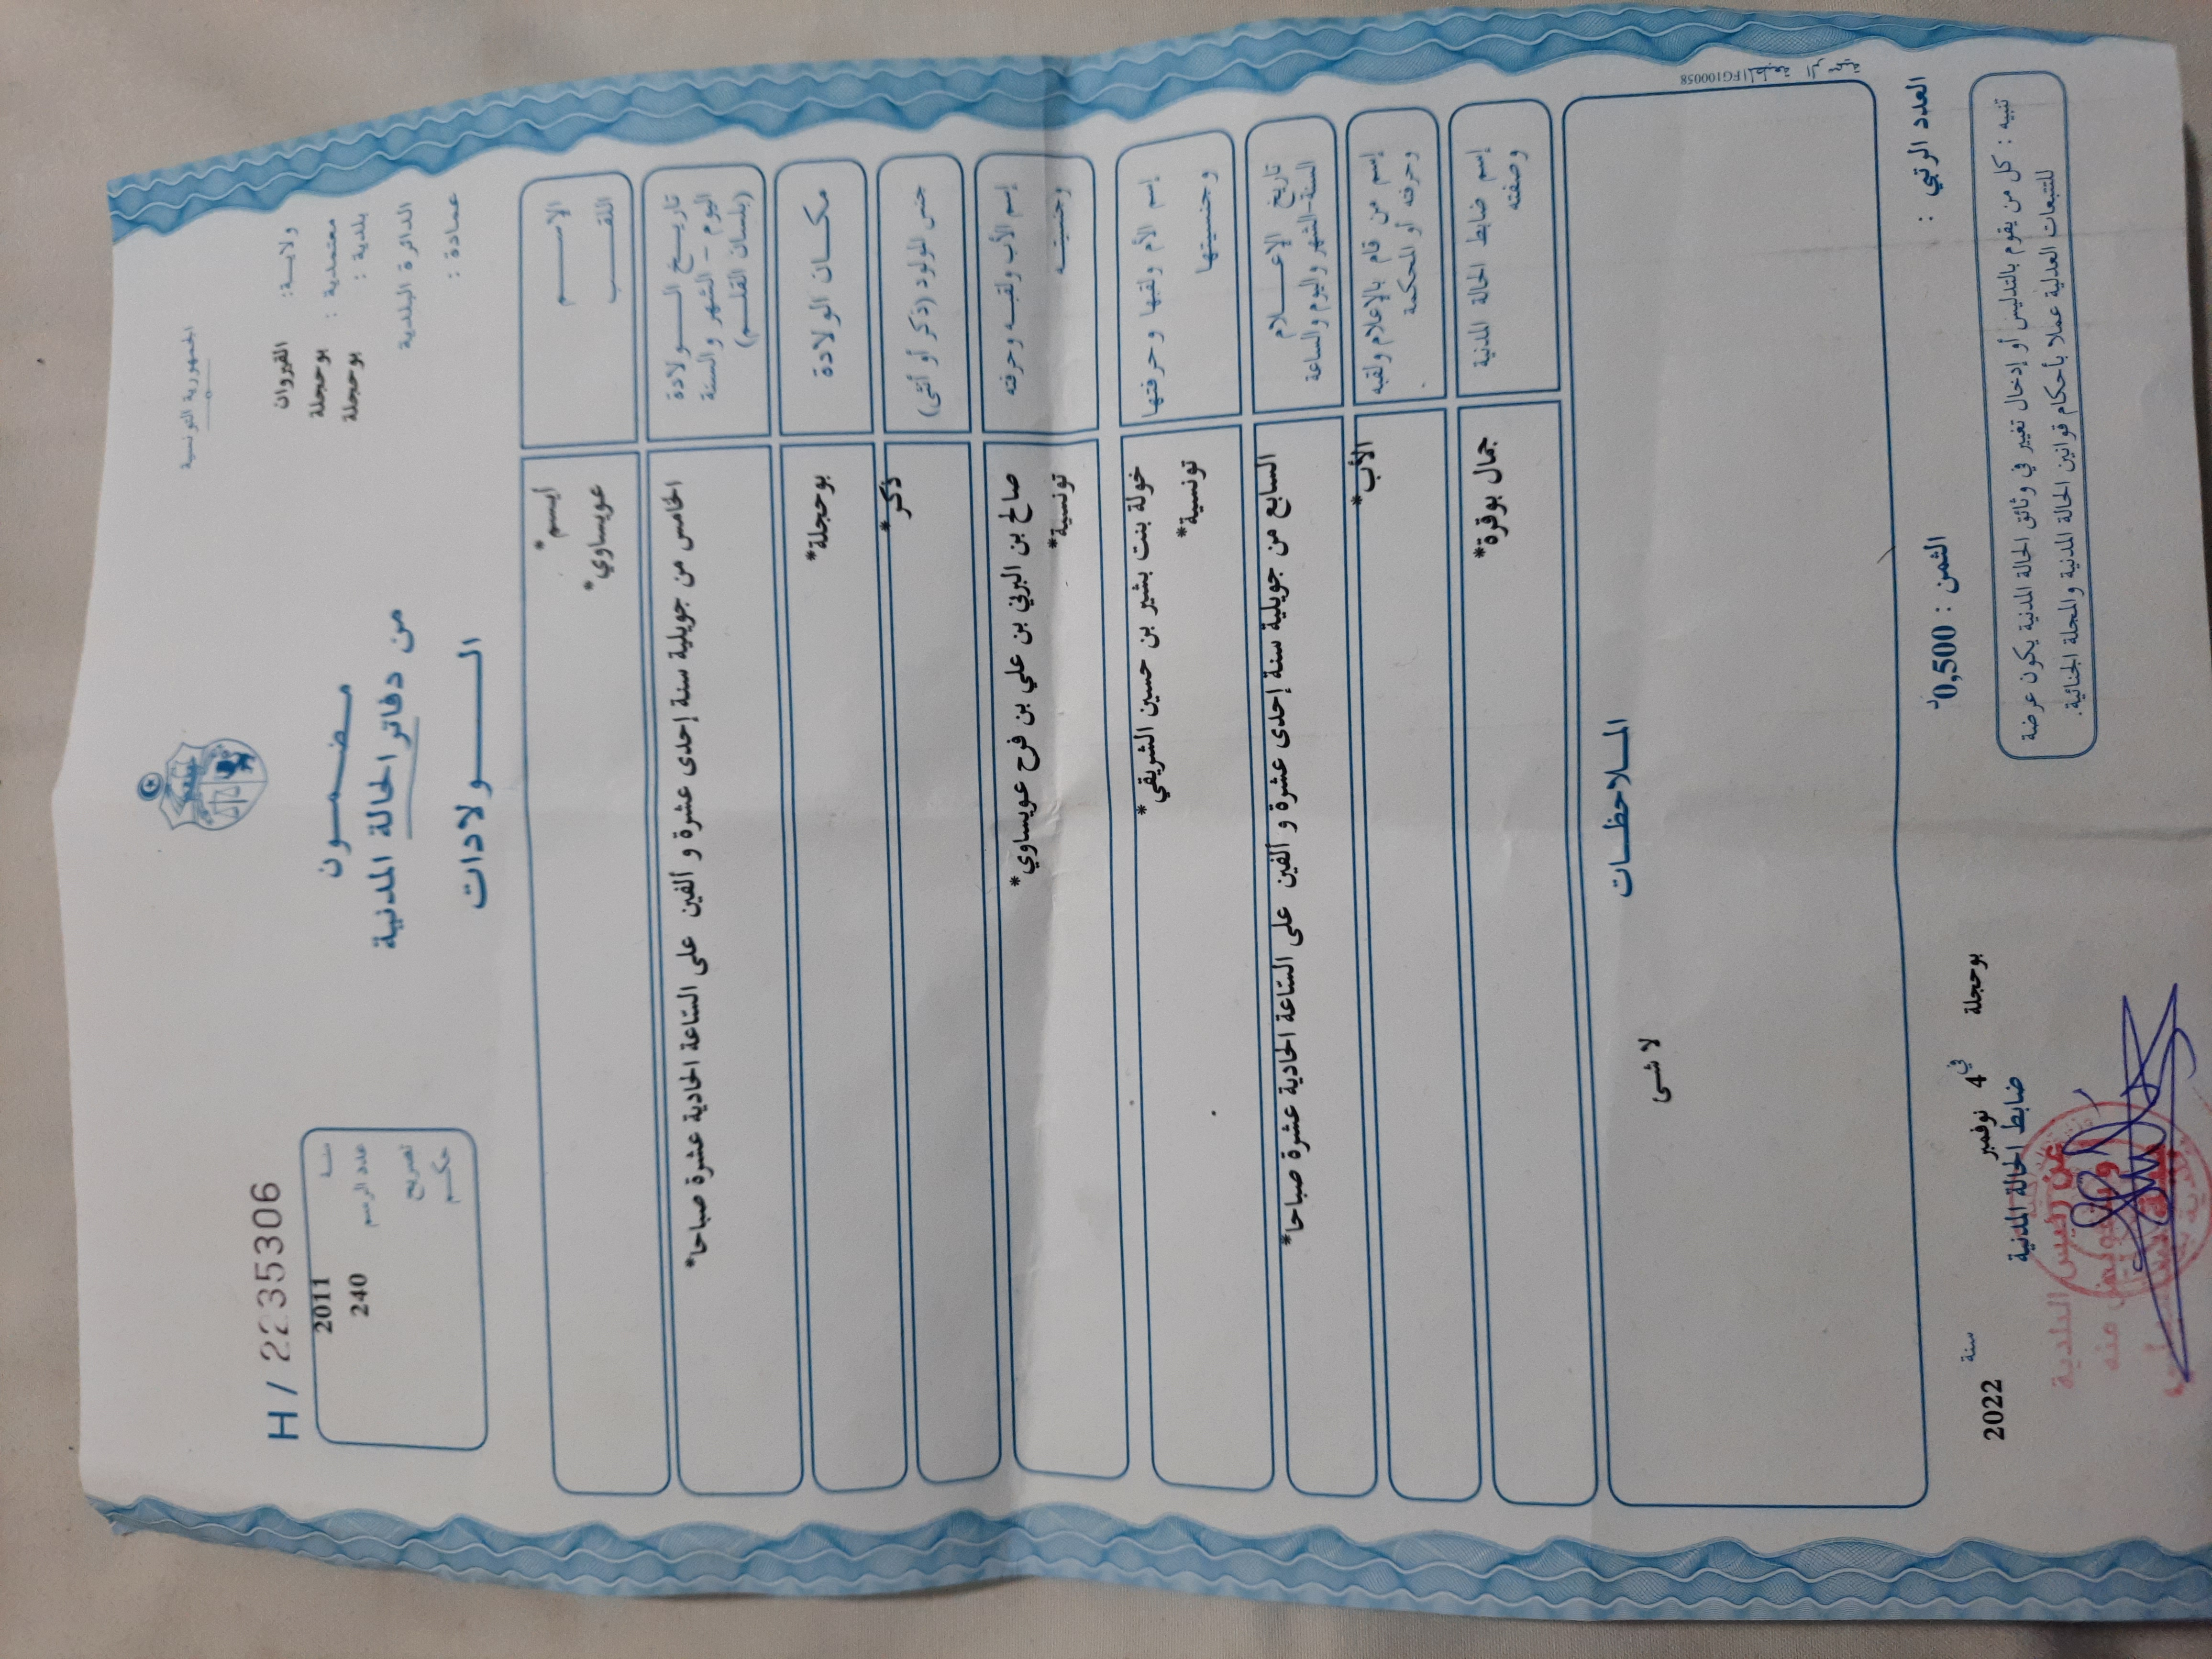 الجمهورية التونسية
ولاية: القيروان
معتمدية: بوحجلة
بلدية: بوحجلة
الدائرة البلدية
عمادة:
مضمون
من دفاتر الحالة المدنية
الولادات
H / 2235306
سنة 2011
عدد الرسم 240
تصريح
حكم
الاسم أيسم*
اللقب عويساوي*
تاريخ الولادة
اليوم - الشهر والسنة
(بلسان القلم)
الخامس من جويلية سنة إحدى عشرة و ألفين على الساعة الحادية عشرة صباحا*
مكان الولادة بوحجلة*
جنس المولود (ذكر أو أنثى) ذكر*
إسم الأب ولقبه وحرفته صالح بن البرني بن علي بن فرح عويساوي*
وجنسيته تونسية*
إسم الأم ولقبها وحرفتها خولة بنت بشير بن حسين الشريقي*
وجنسيتها تونسية*
تاريخ الإعلام
السنة-الشهر واليوم والساعة
السابع من جويلية سنة إحدى عشرة و ألفين على الساعة الحادية عشرة صباحا*
إسم من قام بالإعلام ولقبه
وحرفته أو المحكمة
الأب*
إسم ضابط الحالة المدنية
وصفته
جمال بوقرة*
الملاحظات
لا شى
FG100058
العدد الرتبي :
الثمن : 0,500د
بوحجلة في 4 نوفمبر سنة 2022
ضابط الحالة المدنية
عن رئيس البلدية
وبتفويض منه
تنبيه : كل من يقوم بالتدليس أو إدخال تغيير في وثائق الحالة المدنية يكون عرضة
للتتبعات العدلية عملا بأحكام قوانين الحالة المدنية والمجلة الجنائية.